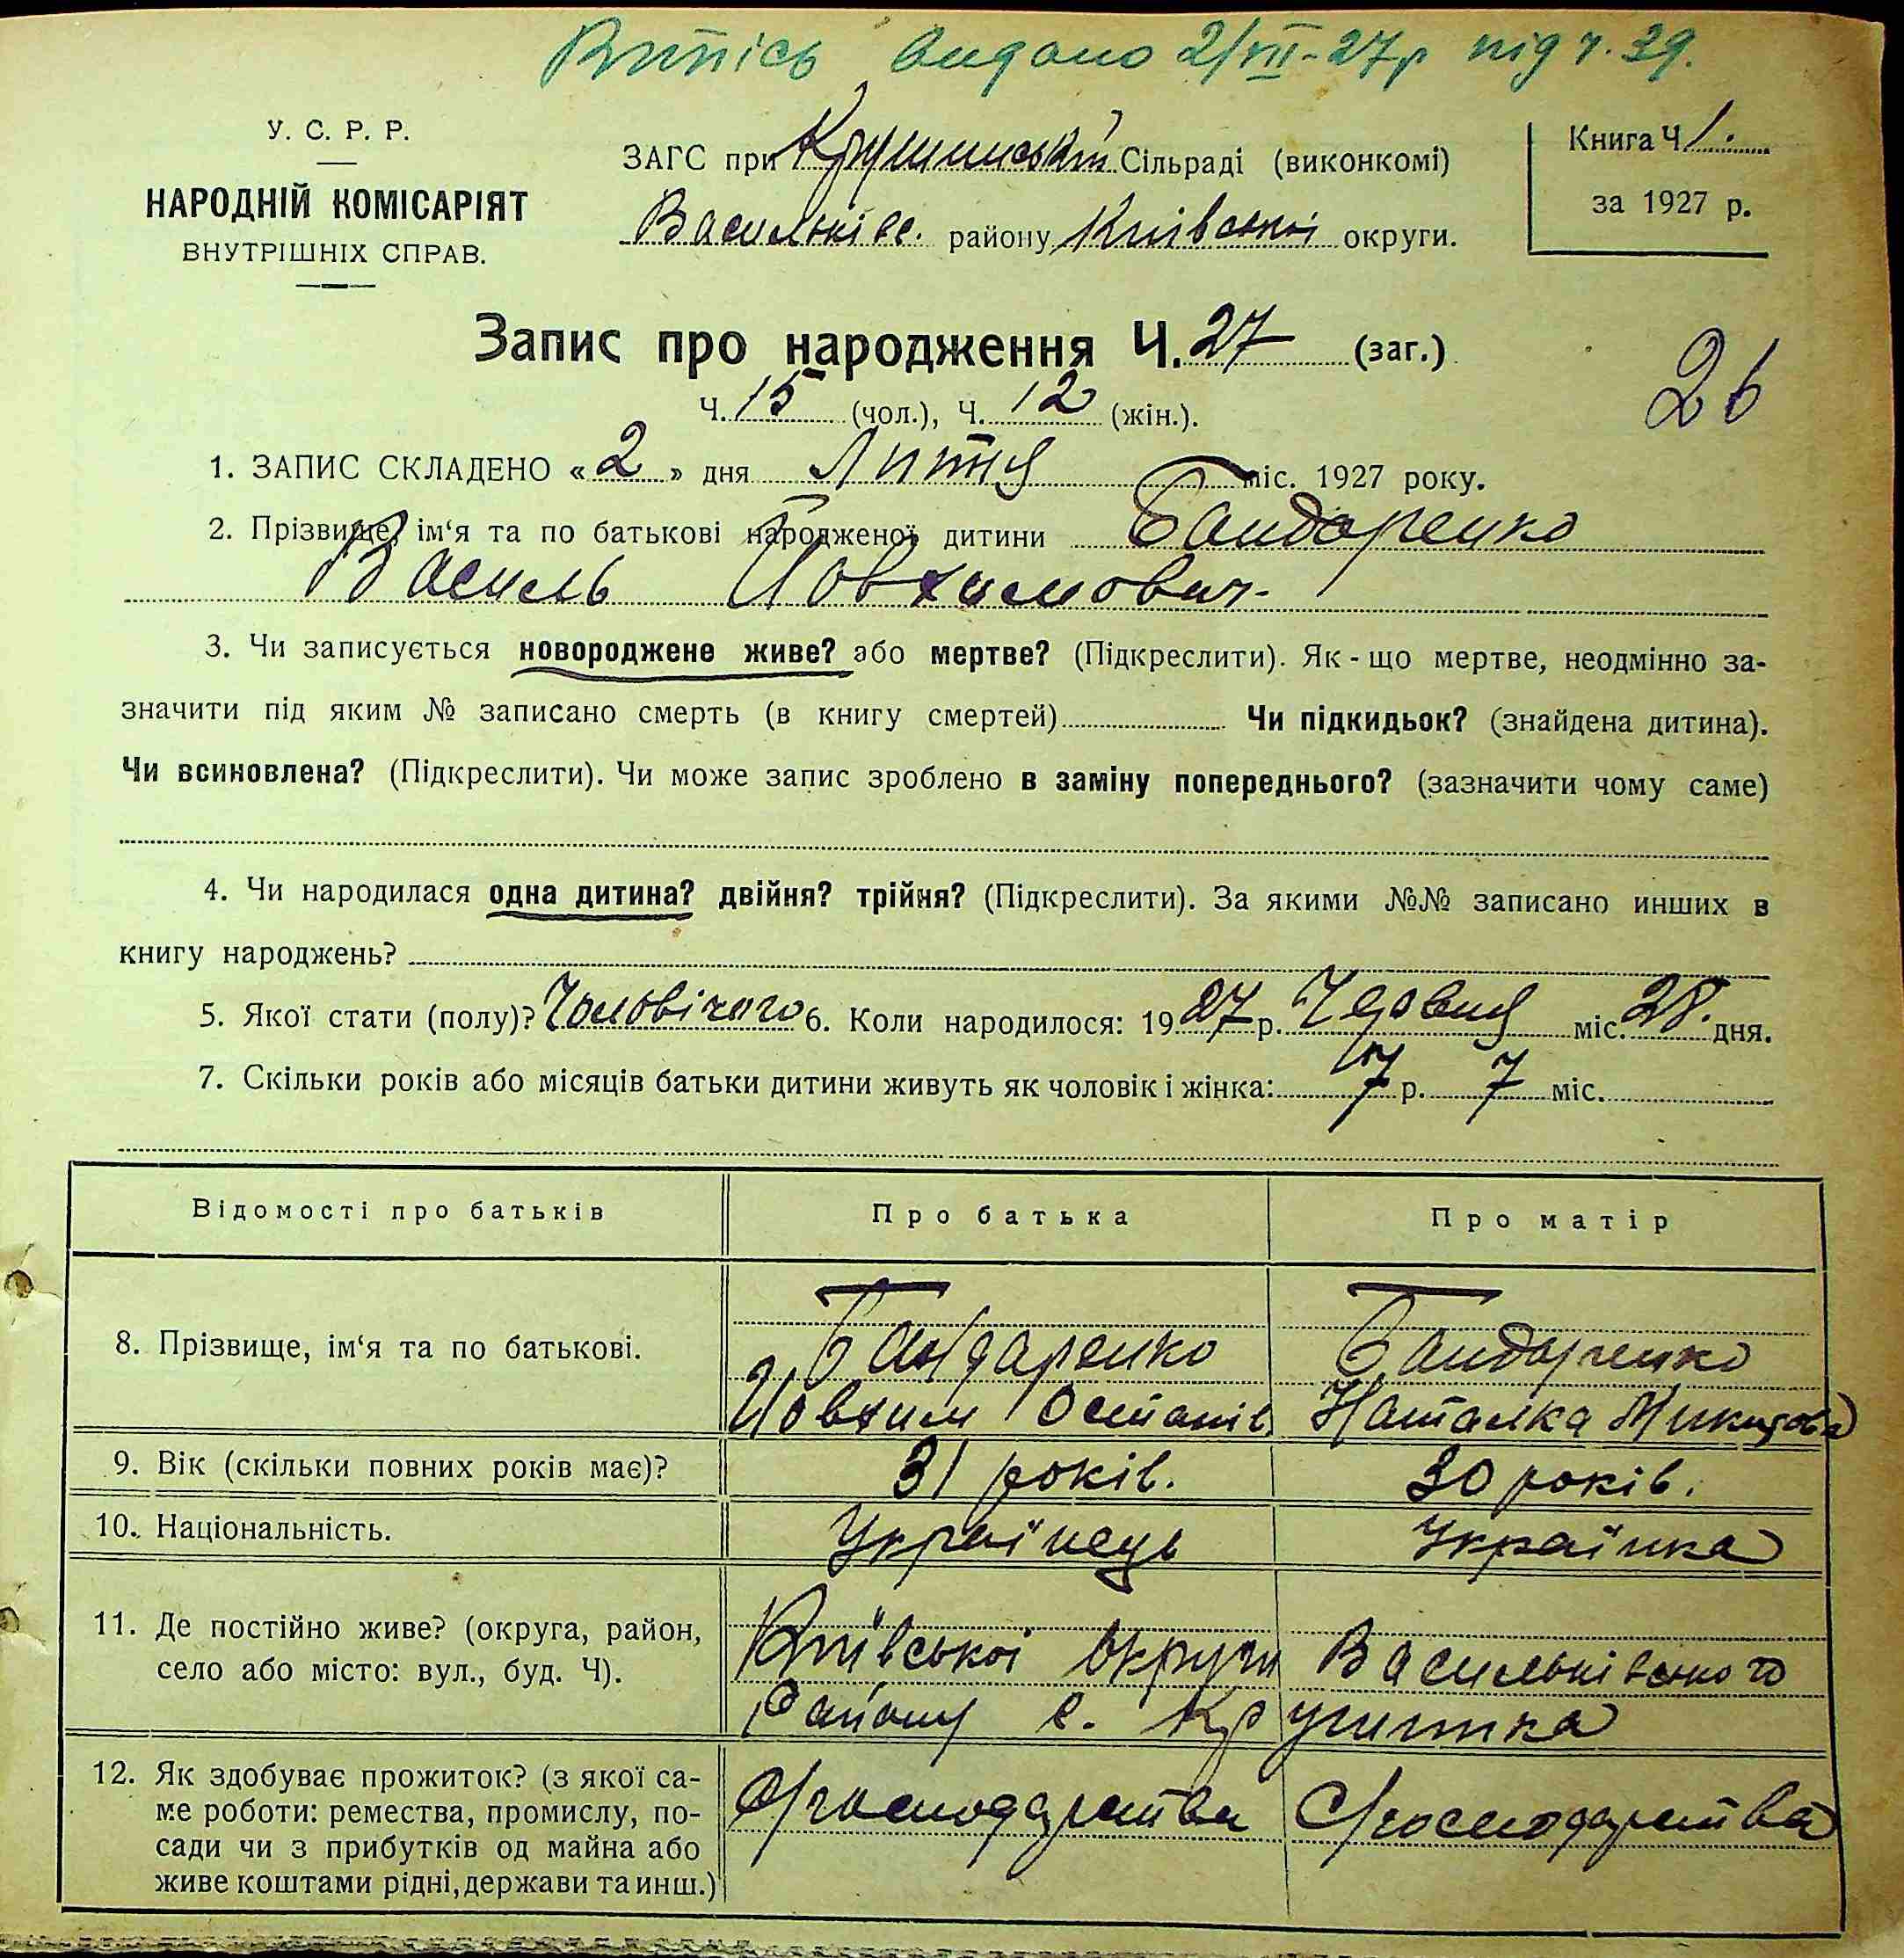 Витпісь видано 2/VII-27р під ч. 39.
У. С. Р. Р.
НАРОДНІЙ КОМІСАРІЯТ
ВНУТРІШНІХ СПРАВ.
ЗАГС при Крушинській Сільраді (виконкомі)
Васильківс. району Київської округи.
Книга Ч 1.
за 1927 р.
Запис про народження Ч. 27 (заг.)
26
Ч. 15 (чол.), Ч. 12 (жін.).
1. ЗАПИС СКЛАДЕНО «2» дня Липня міс. 1927 року.
2. Прізвище, ім‘я та по батькові народженої дитини Бандаренко
Василь Йовхимович.
3. Чи записується новороджене живе? або мертве? (Підкреслити). Як-що мертве, неодмінно за-
значити під яким № записано смерть (в книгу смертей) Чи підкидьок? (знайдена дитина).
Чи всиновлена? (Підкреслити). Чи може запис зроблено в заміну попереднього? (зазначити чому саме)
4. Чи народилася одна дитина? двійня? трійня? (Підкреслити). За якими №№ записано инших в
книгу народжень?
5. Якої стати (полу)? Чоловічого 6. Коли народилося: 1927 р. Червня міс. 28. дня.
7. Скільки років або місяців батьки дитини живуть як чоловік і жінка: 7 р. 7 міс.
Відомості про батьків Про батька Про матір
8. Прізвище, ім‘я та по батькові.
Бандаренко Бандаренко
Йовхим Остапів Наталка Микитова
9. Вік (скільки повних років має)? 31 років. 30 років.
10. Національність. Українець Українка
11. Де постійно живе? (округа, район,
село або місто: вул., буд. Ч).
Київської округи Васильківського
району с. Крушинка
12. Як здобуває прожиток? (з якої са-
ме роботи: ремества, промислу, по-
сади чи з прибутків од майна або
живе коштами рідні, держави та инш.)
С/господарства С/господарства